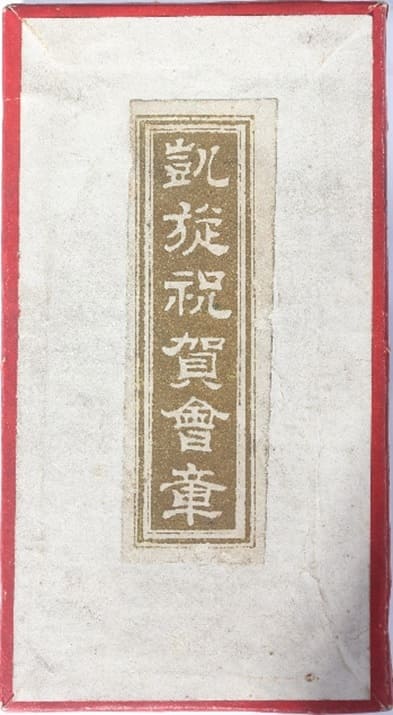 凱旋祝賀會章